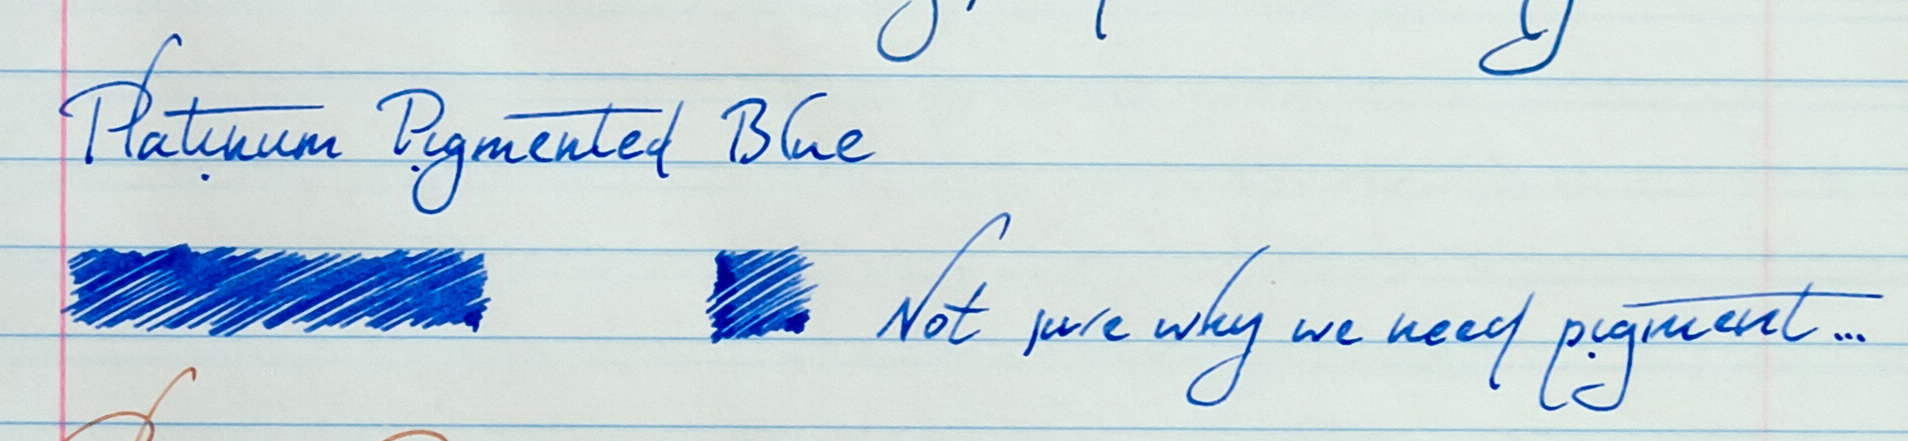 Platinum Pigmented Blue
Not sure why we need pigment...